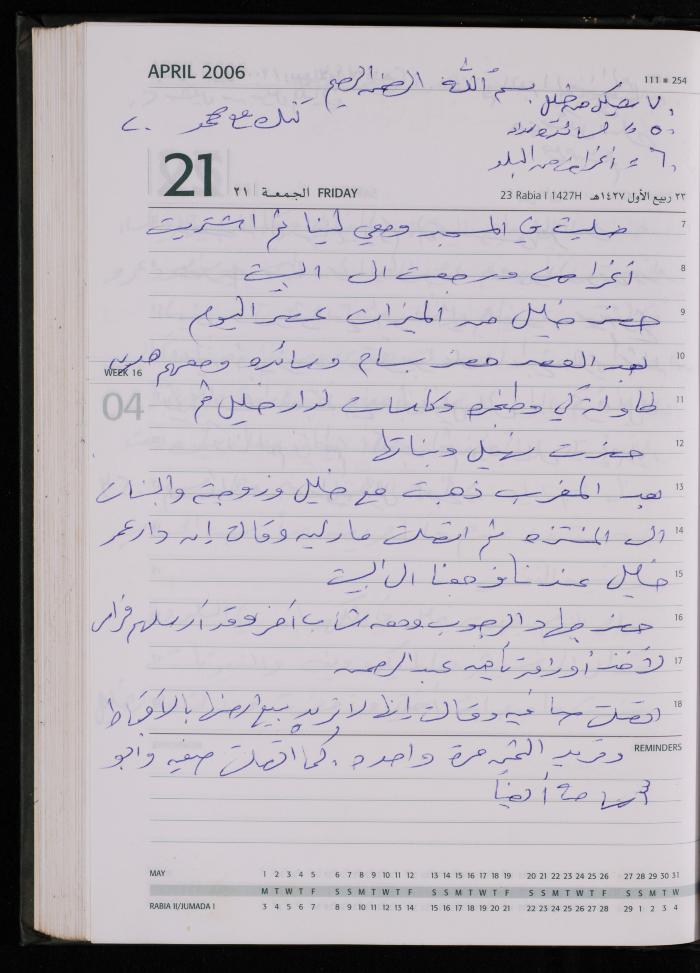 APRIL 2006
111 * 254
بسم الله الرحمن الرحيم
٧٠ من خليل
٥٠
٦٠ أغراض من البلد
21
٢١ الجمعة FRIDAY
23 Rabia I 1427H ٢٣ ربيع الأول ١٤٢٧هـ
7 صليت في المسجد ومعي لينا ثم اشتريت
8 أغراض ورجعت الى البيت
9 حضر خليل من الميزان عصر اليوم
10 بعد العصر حضر بسام وسائده ومعهم
WEEK 16
04
11 طاولة كي وطنجره وكاسات لدار خليل ثم
12 حضرت نهيل وبناتها
13 بعد المغرب ذهبت مع خليل وزوجته والبنات
14 الى المنتزه ثم اتصلت ماريه وقالت إن دار عمر
15 خليل عندنا فرجعنا الى البيت
16 حضر جهاد الرجوب ومعه شاب آخر وقد أرسلهم فراس
17 لأخذ أوراق تأمين عبد الرحمن
18 اتصلت صافيه وقالت إنها لا تريد بيع ارضها بالأقساط
REMINDERS
وتريد الثمن مرة واحده . كما اتصلت صفيه وابو
أسامة أيضاً
MAY
1 2 3 4 5 6 7 8 9 10 11 12 13 14 15 16 17 18 19 20 21 22 23 24 25 26 27 28 29 30 31
M T W T F S S M T W T F S S M T W T F S S M T W T F S S M T W
RABIA II/JUMADA I 3 4 5 6 7 8 9 10 11 12 13 14 15 16 17 18 19 20 21 22 23 24 25 26 27 28 29 1 2 3 4